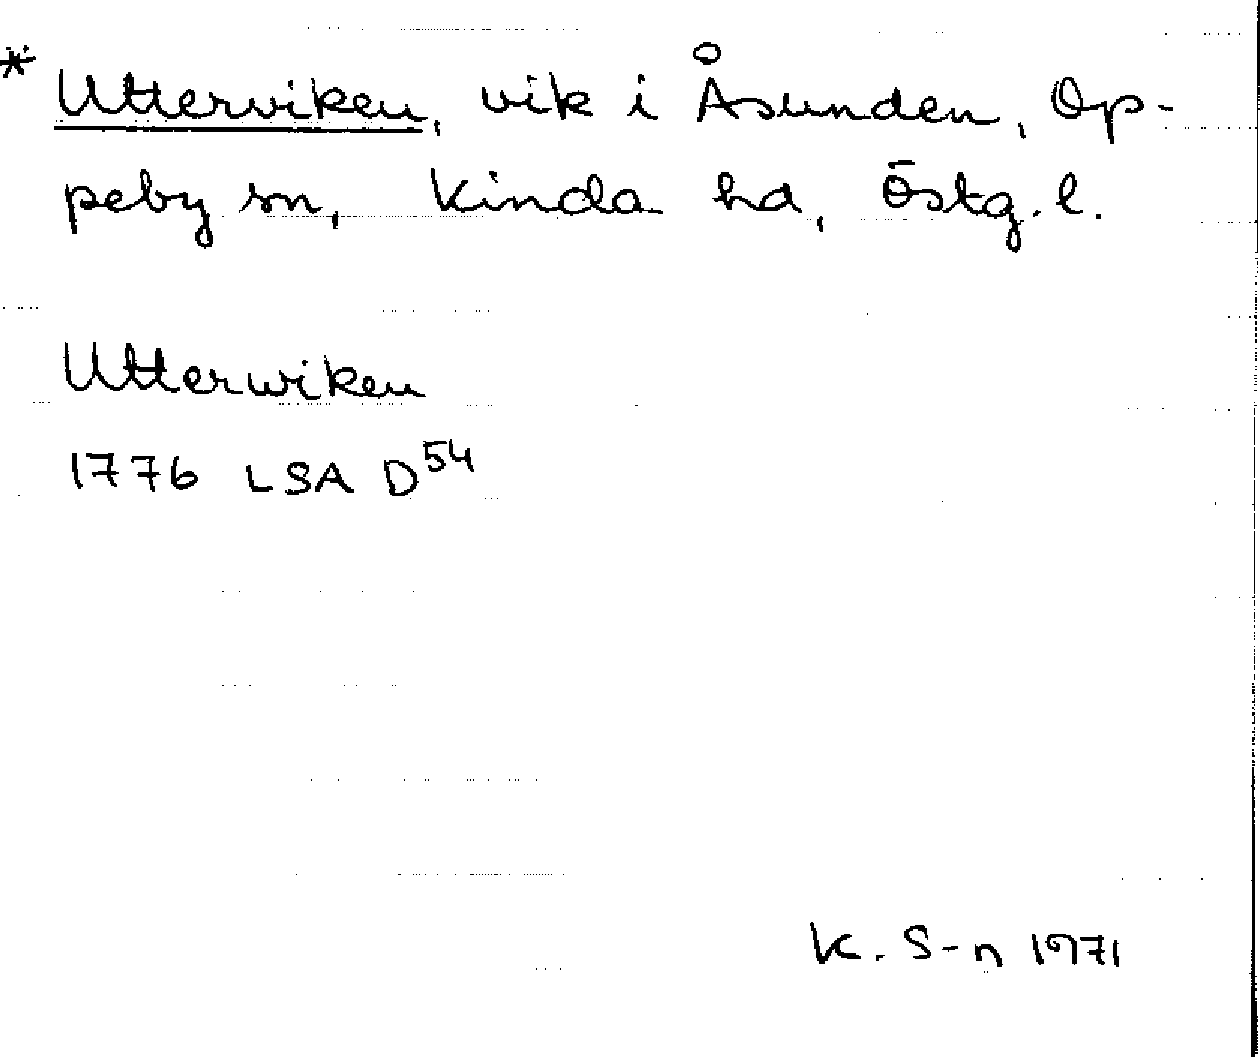 * Utterviken, vik i Åsunden, Op-
peby sn, Kinda hd, Östg. l.
Utterwiken
1776 LSA D⁵⁴
K. S-n 1971